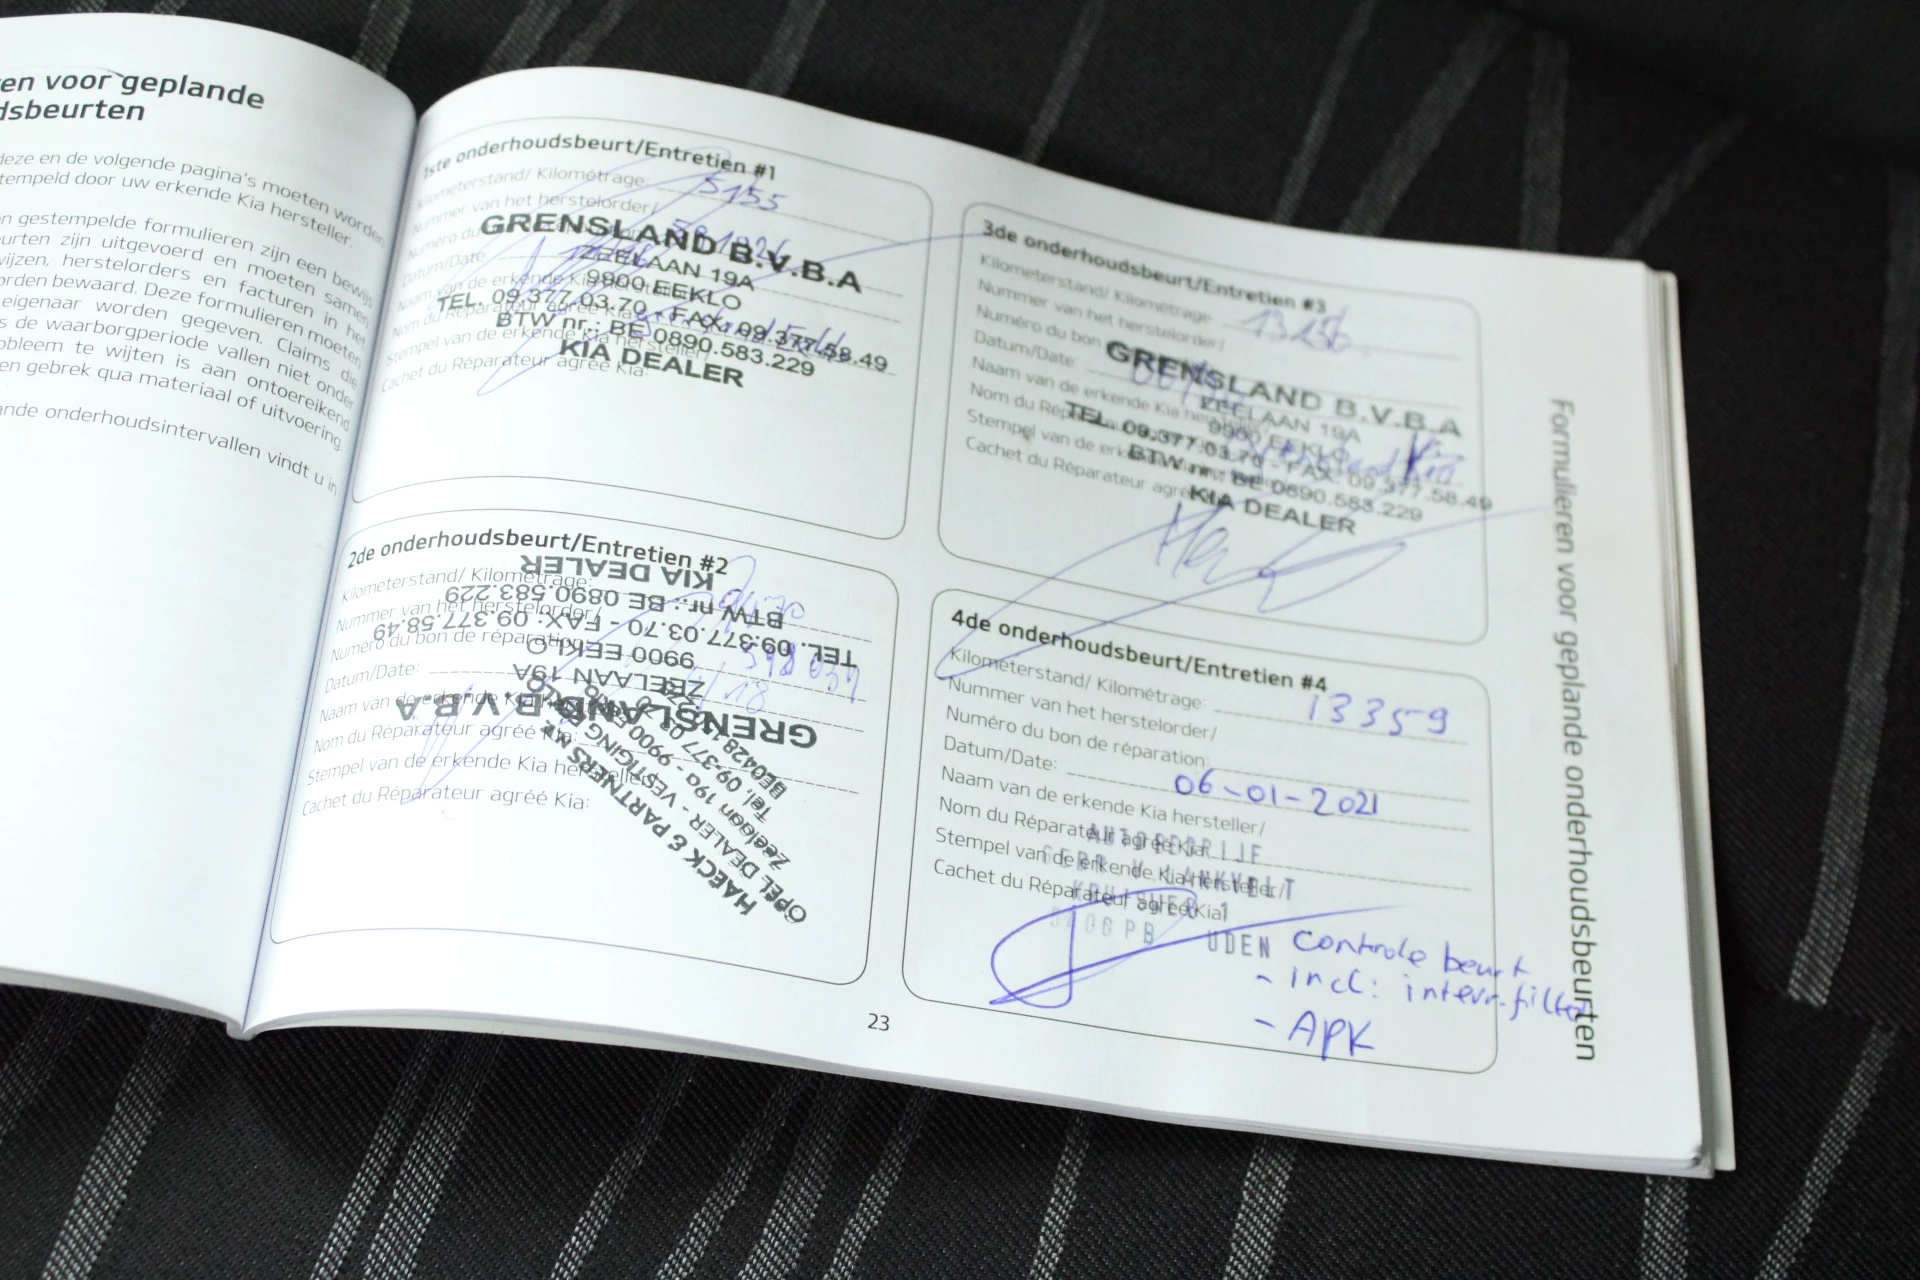 en voor geplande
dsbeurten
deze en de volgende pagina's moeten worden
tempeld door uw erkende Kia hersteller.
n gestempelde formulieren zijn een bewijs
urten zijn uitgevoerd en moeten samen
wijzen, herstelorders en facturen in het
orden bewaard. Deze formulieren moeten
eigenaar worden gegeven. Claims die
s de waarborgperiode vallen niet onder
obleem te wijten is aan ontoereikend
en gebrek qua materiaal of uitvoering.
ande onderhoudsintervallen vindt u in
1ste onderhoudsbeurt/Entretien #1
Kilometerstand/ Kilométrage: 5155
Nummer van het herstelorder/
Numéro du
Datum/Date:
Naam van de erkende Kia
Nom du Réparateur agréé Kia:
Stempel van de erkende Kia hersteller/
Cachet du Réparateur agréé Kia:
GRENSLAND B.V.B.A
ZEELAAN 19A
9900 EEKLO
TEL. 09.377.03.70 - FAX: 09.377.58.49
BTW nr.: BE 0890.583.229
KIA DEALER
2de onderhoudsbeurt/Entretien #2
Kilometerstand/ Kilométrage:
Nummer van het herstelorder/
Numéro du bon de réparation:
Datum/Date:
Naam van de erkende Kia
Nom du Réparateur agréé Kia:
Stempel van de erkende Kia hersteller/
Cachet du Réparateur agréé Kia:
GRENSLAND B.V.B.A
ZEELAAN 19A
9900 EEKLO
TEL. 09.377.03.70 - FAX: 09.377.58.49
BTW nr.: BE 0890.583.229
KIA DEALER
HAECK & PARTNERS NV
OPEL DEALER - VESTIGING
Zeelaan 19a - 9900
Tel. 09.377 03
BE0428
3de onderhoudsbeurt/Entretien #3
Kilometerstand/ Kilométrage: 13156
Nummer van het herstelorder/
Numéro du bon
Datum/Date:
Naam van de erkende Kia
Nom du
Stempel van de
Cachet du Réparateur agréé
GRENSLAND B.V.B.A
ZEELAAN 19A
9900 EEKLO
TEL. 09.377.03.70 - FAX: 09.377.58.49
BTW nr.: BE 0890.583.229
KIA DEALER
4de onderhoudsbeurt/Entretien #4
Kilometerstand/ Kilométrage: 13359
Nummer van het herstelorder/
Numéro du bon de réparation:
Datum/Date: 06-01-2021
Naam van de erkende Kia hersteller/
Nom du Réparateur agréé Kia:
Stempel van de erkende Kia hersteller/
Cachet du Réparateur agréé Kia:
UDEN
controle beurt
- incl: interr.filter
- APK
23
Formulieren voor geplande onderhoudsbeurten